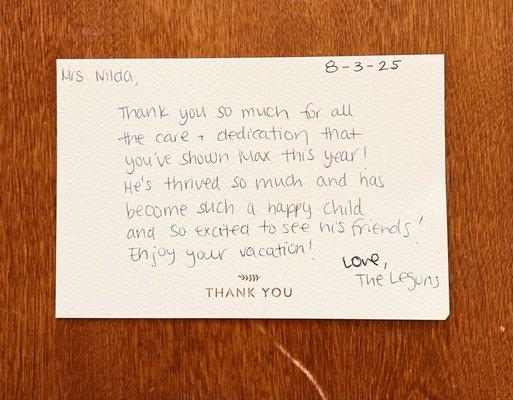 Mrs Nilda,
8-3-25
Thank you so much for all
the care + dedication that
you've shown Max this year!
He's thrived so much and has
become such a happy child
and so excited to see his friends!
Enjoy your vacation!
Love,
The Leguns
THANK YOU